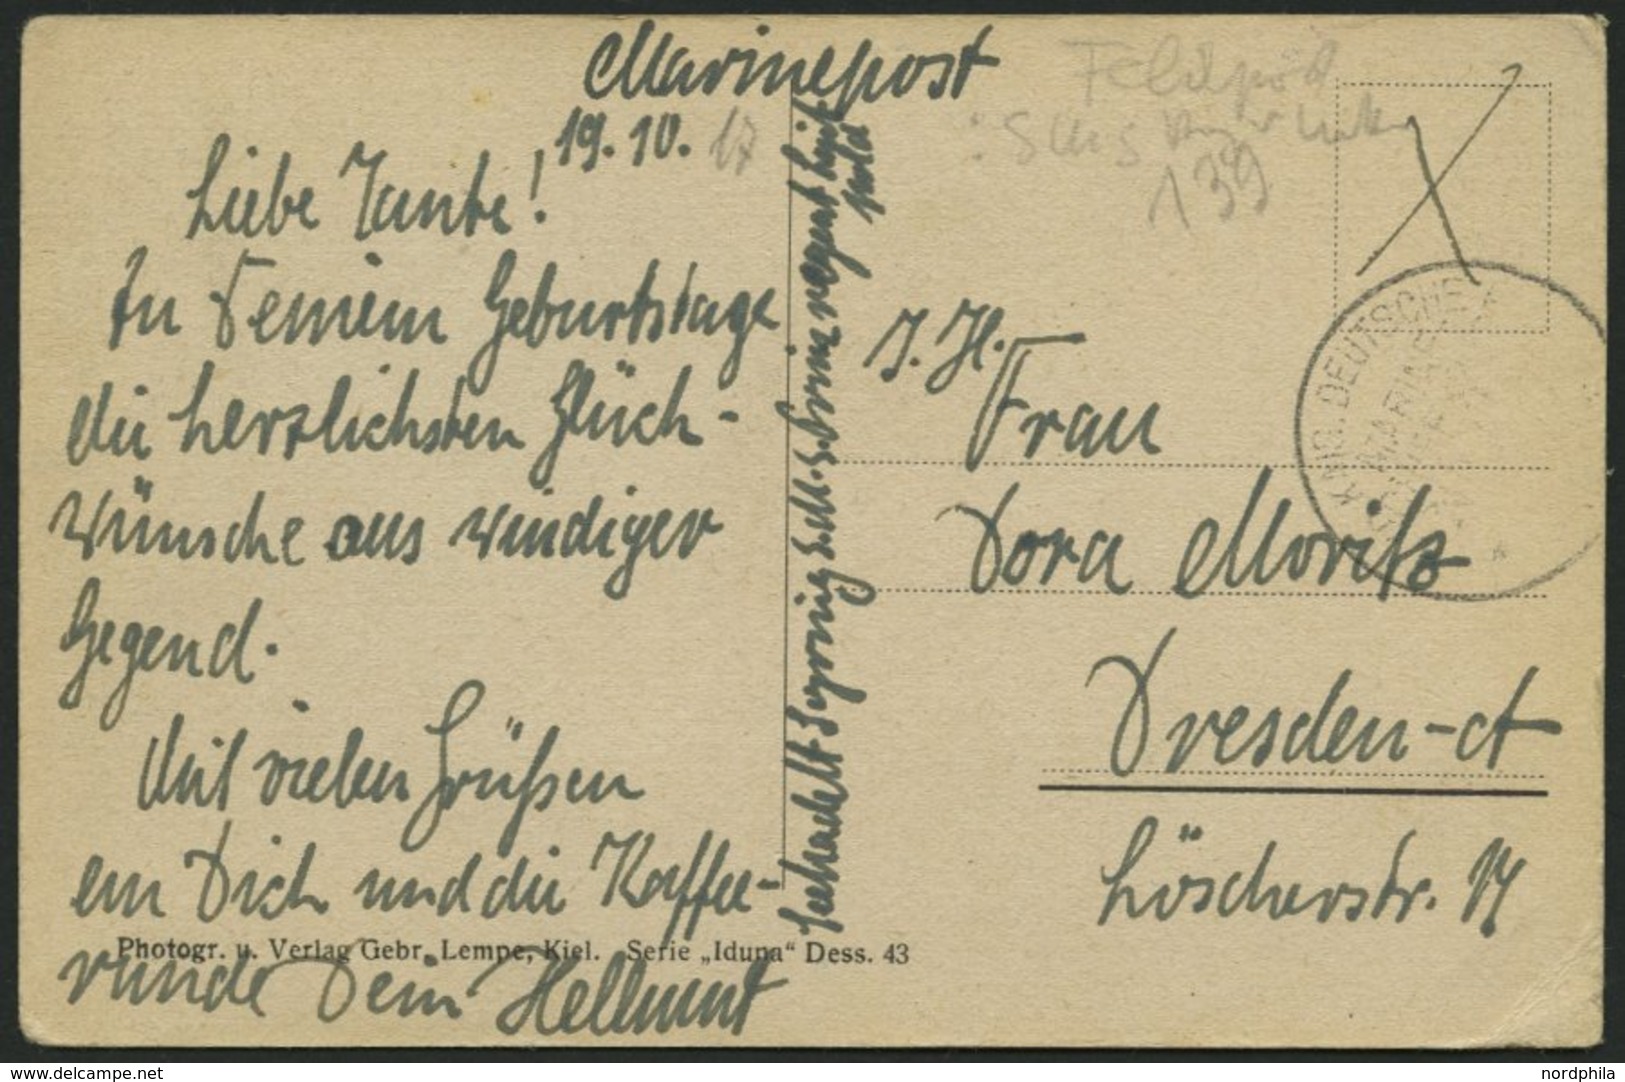 Marinepost
19.10. 17
Liebe Tante!
Zu Deinem Geburtstage
die herzlichsten Glück-
wünsche aus windiger
Gegend.
Mit vielen Grüßen
an Dich und die Kaffee-
runde Dein Hellmut
Photogr. u. Verlag Gebr. Lempe, Kiel. Serie „Iduna“ Dess. 43
Seekadett S.M.S. Prinzregent Luitpold
Feldpost
SMS
139
KAIS. DEUTSCHE
MARINE
I. H.
Frau
Dora Moritz
Dresden-A
Löscherstr. 14
delcampe.net
nordphila